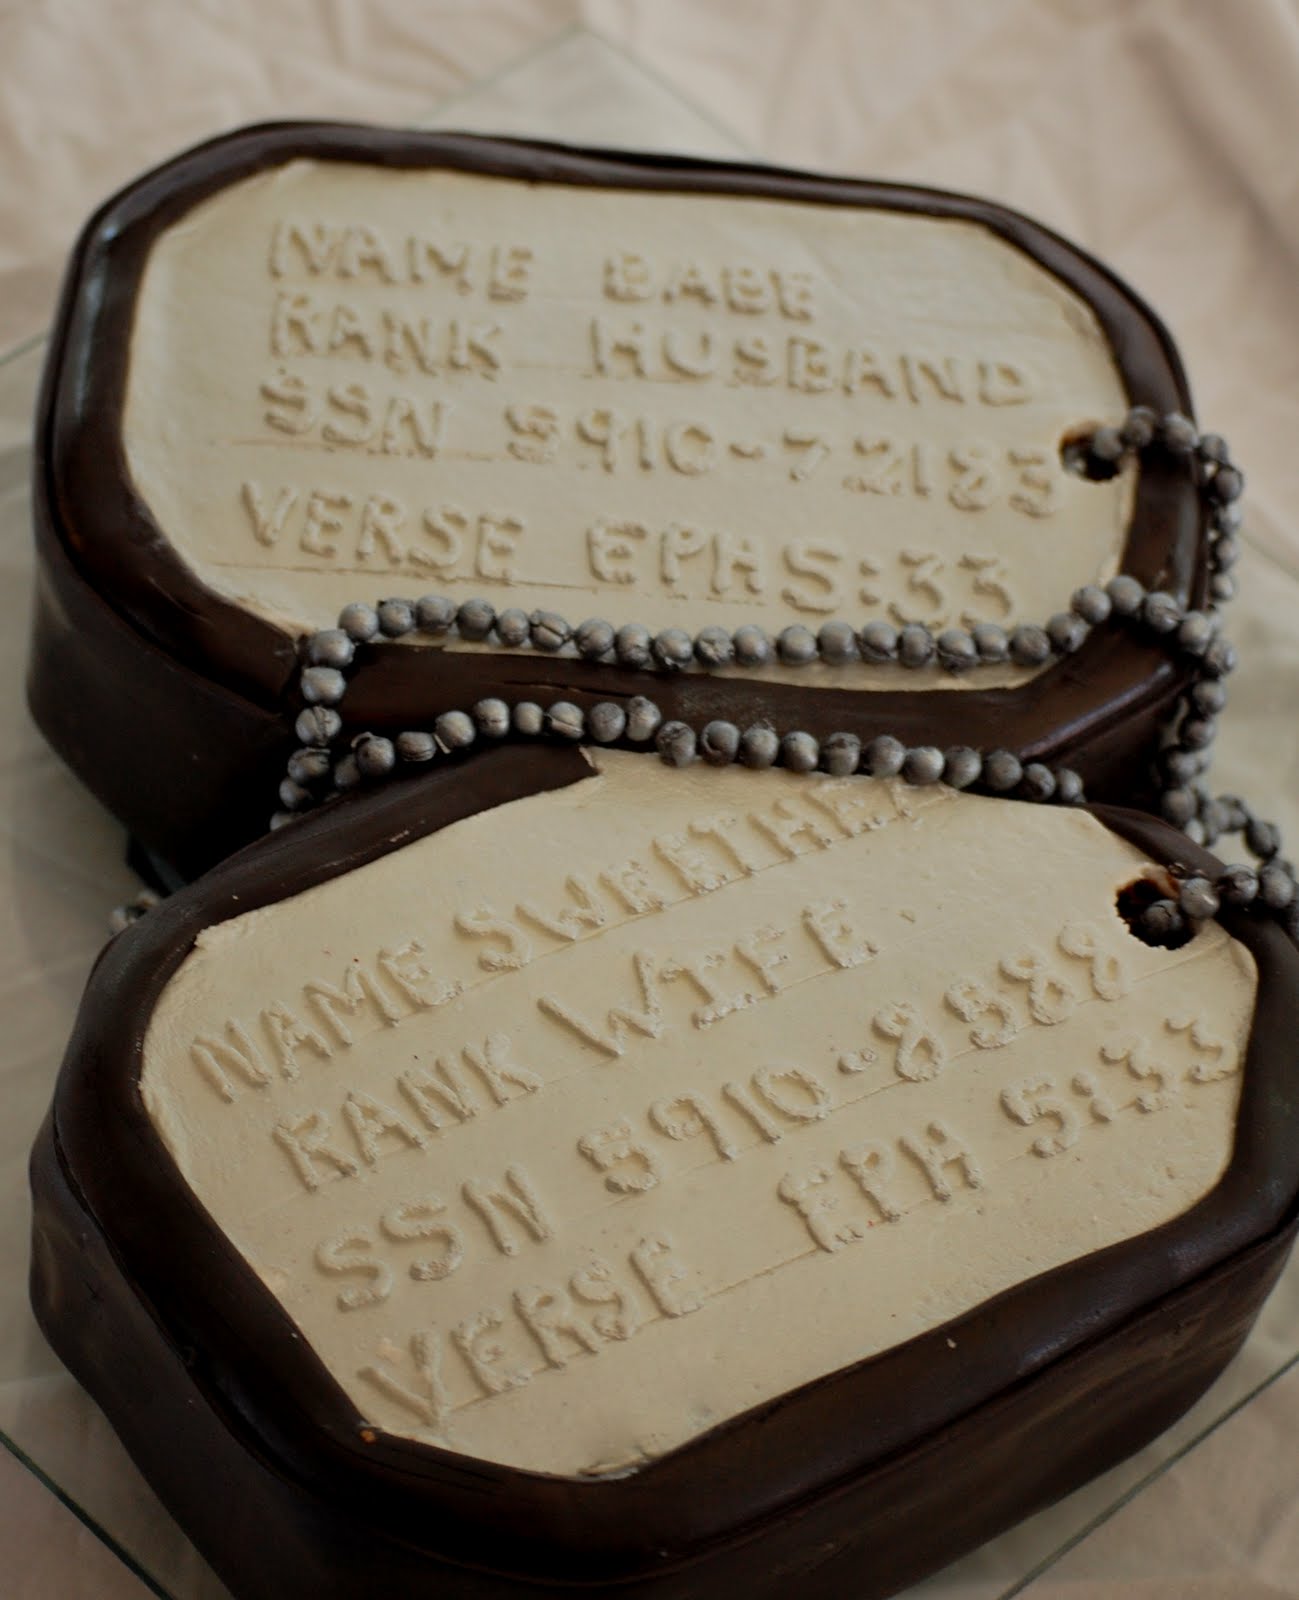 NAME BABE
RANK HUSBAND
SSN 5910-72183
VERSE EPH 5:33
NAME SWEETHEA
RANK WIFE
SSN 5910-8588
VERSE EPH 5:33